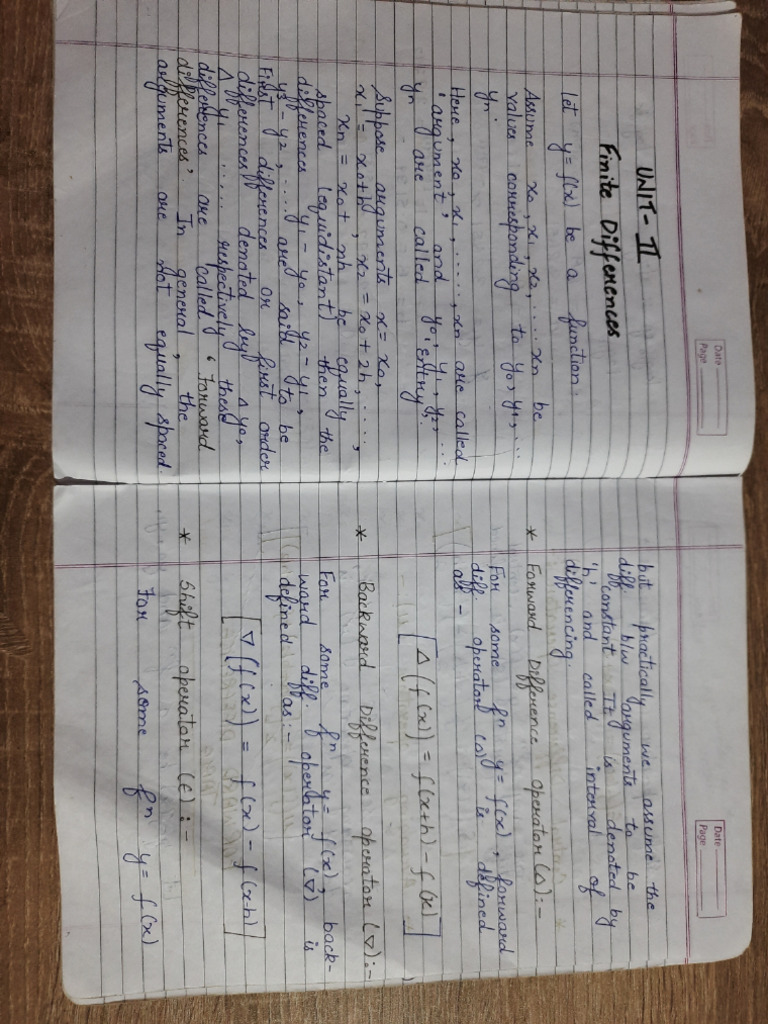 Date
Page
UNIT - II
Finite Differences
let y = f(x) be a function.
Assume x0, x1, x2, .... xn be
values corresponding to y0, y1, ...
yn.
Here, x0, x1, ....., xn are called
'argument' and y0, y1, y2, ...
yn are called 'entry'.
Suppose arguments x = x0,
x1 = x0+h, x2 = x0+2h, ....,
xn = x0 + nh be equally
spaced (equidistant) then the
differences y1 - y0, y2 - y1,
y3 - y2, .... are said to be
First differences or first order
differences denoted by Δy0,
Δy1 ..... respectively these
differences are called 'Forward
differences'. In general, the
arguments are not equally spaced
Date
Page
but practically we assume the
diff b/w arguments to be
constant. It is denoted by
'h' and called interval of
differencing.
* Forward Difference Operator (Δ):-
For some fn y = f(x), forward
diff operator (Δ) is defined
as -
[Δ(f(x)) = f(x+h) - f(x)]
* Backward Difference operator (∇):-
For some fn y = f(x), back-
ward diff operator (∇) is
defined as:-
[∇(f(x)) = f(x) - f(x-h)]
* Shift operator (E):-
For some fn y = f(x)